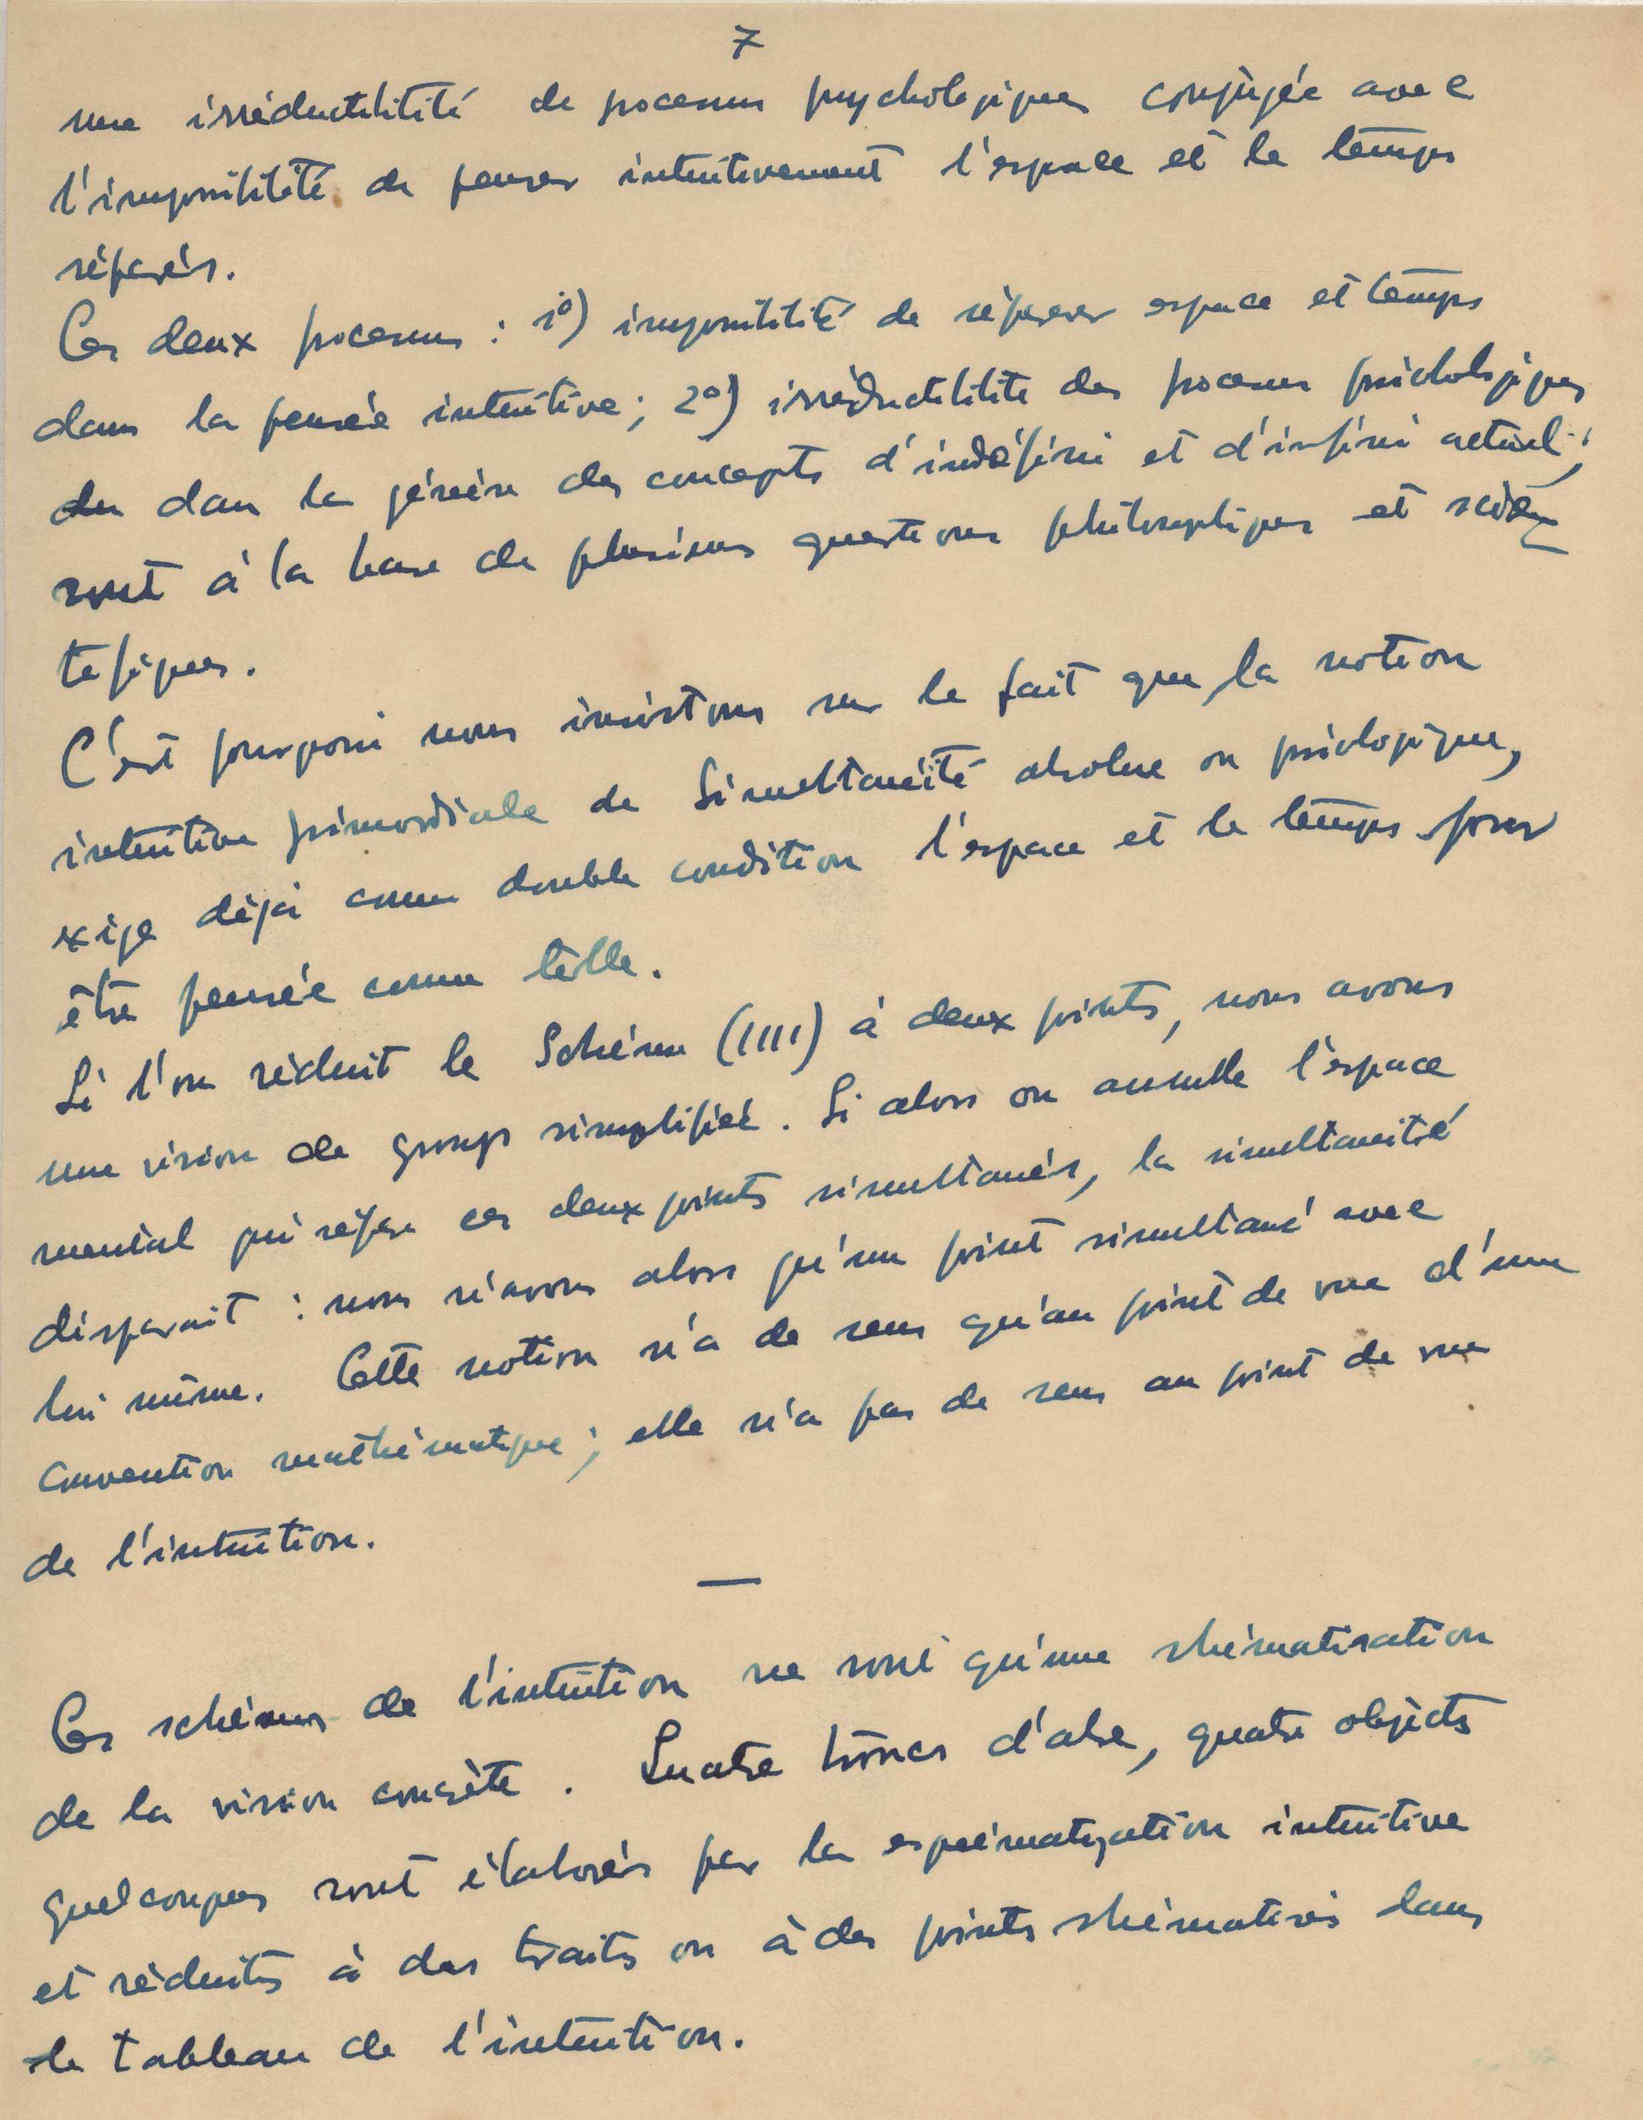 7
une irréductibilité de processus psychologiques conjugée avec
l'impossibilité de penser intuitivement l'espace et le temps
séparés.
Ces deux processus : 1º) impossibilité de séparer espace et temps
dans la pensée intuitive ; 2º) irréductibilité des processus psicologiques
dans la génèse des concepts d'indéfini et d'infini actuel ;
sont à la base de plusieurs questions philosophiques et scien
tefiques.
C'est pourquoi nous insistons sur le fait que la notion
intuitive primordiale de Simultanéité absolue ou psicologique,
exige déjà comme double condition l'espace et le temps pour
être pensée comme telle.
Si l'on réduit le Schéma (IIII) à deux points, nous avons
une vision de group simplifiée. Si alors on annulle l'espace
mental qui sépare ces deux points simultanés, la simultaneité
disparait : nous n'avons alors qu'un point simultané avec
lui même. Cette notion n'a de sens qu'au point de vue d'une
convention mathématique ; elle n'a pas de sens au point de vue
de l'intuition.
—
Ces schémas de l'intuition ne sont qu'une shématisation
de la vision concrète. Quatre troncs d'abre, quatre objects
quelconques sont élaborés par la esquématization intuitive
et réduits à des traits ou à des points shématisés dans
le tableau de l'intuition.